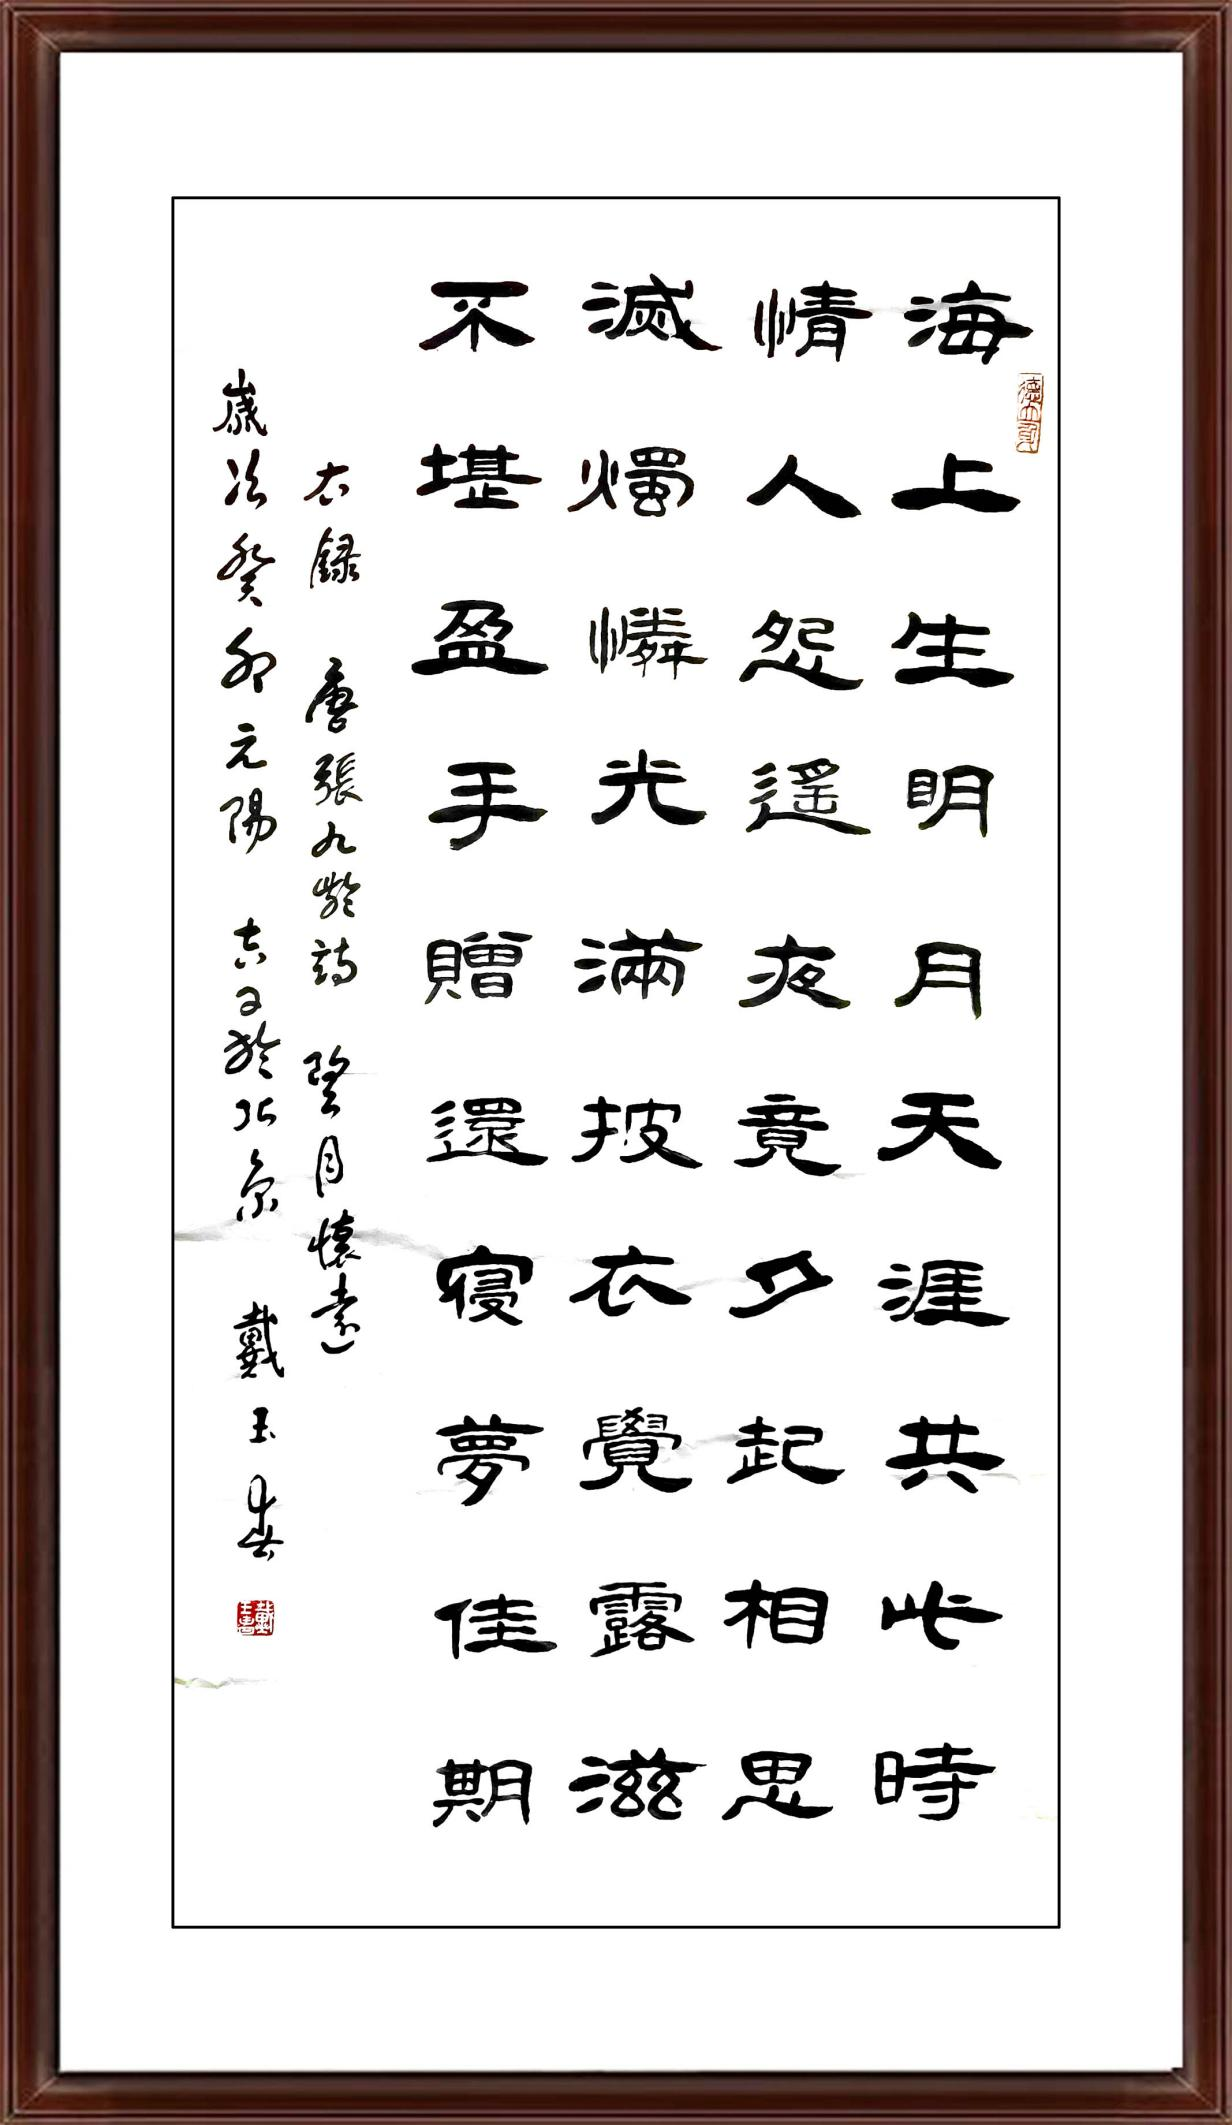 海上生明月天涯共此時
情人怨遙夜竟夕起相思
滅燭憐光滿披衣覺露滋
不堪盈手贈還寢夢佳期
右録 唐張九齡詩 望月懷遠
歲次癸卯元陽 吉日於北京 戴玉